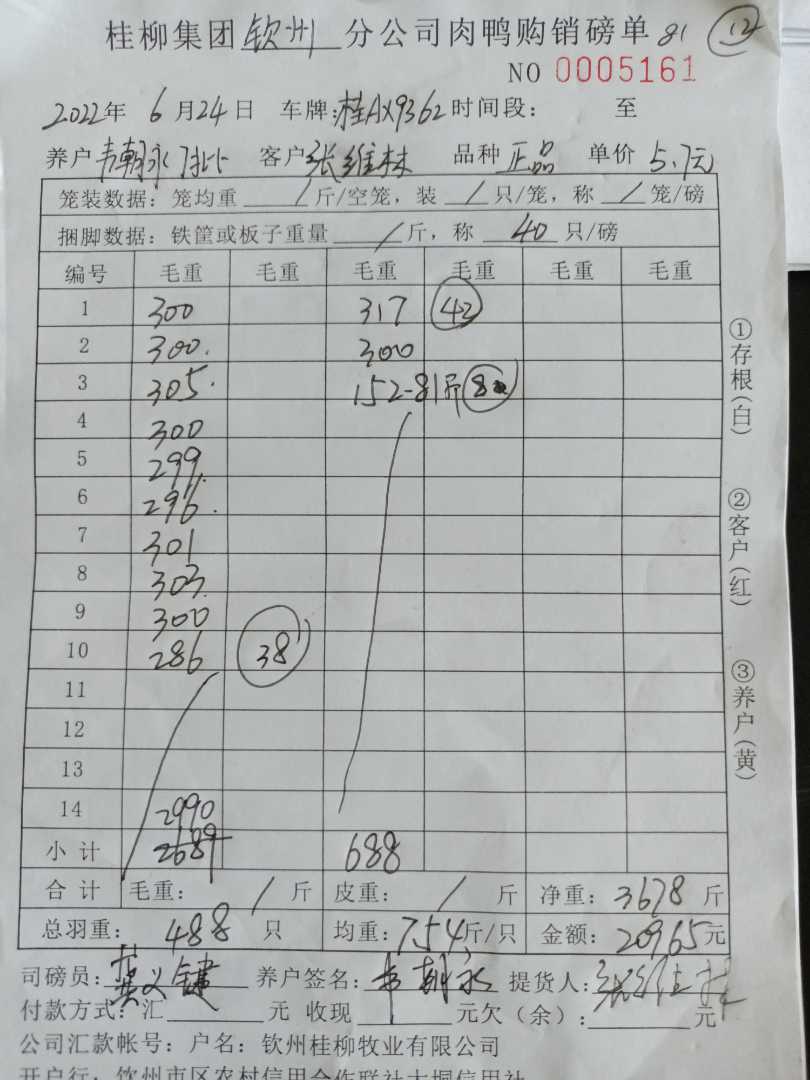 桂柳集团 钦州 分公司肉鸭购销磅单 81 12
NO 0005161
2022年 6月24日 车牌:桂AX9362 时间段: 至
养户 韦朝永 客户 张维林 品种 正品 单价 5.7元
笼装数据: 笼均重 / 斤/空笼, 装 / 只/笼, 称 / 笼/磅
捆脚数据: 铁筐或板子重量 / 斤, 称 40 只/磅
编号 毛重 毛重 毛重 毛重 毛重 毛重
1 300 317 42
2 300. 300
3 305. 152-81斤
4 300
5 299.
6 296.
7 301
8 303.
9 300
10 286 38
11
12
13
14 2990
小计 2689 688
合计 毛重: / 斤 皮重: / 斤 净重: 3678 斤
总羽重: 488 只 均重: 7.54斤/只 金额: 20965元
司磅员: 龚义键 养户签名: 韦朝永 提货人: 张维林
付款方式: 汇 元 收现 元欠(余): 元
公司汇款帐号: 户名: 钦州桂柳牧业有限公司
开户行: 钦州市区农村信用合作联社大垌信用社
①存根(白)
②客户(红)
③养户(黄)